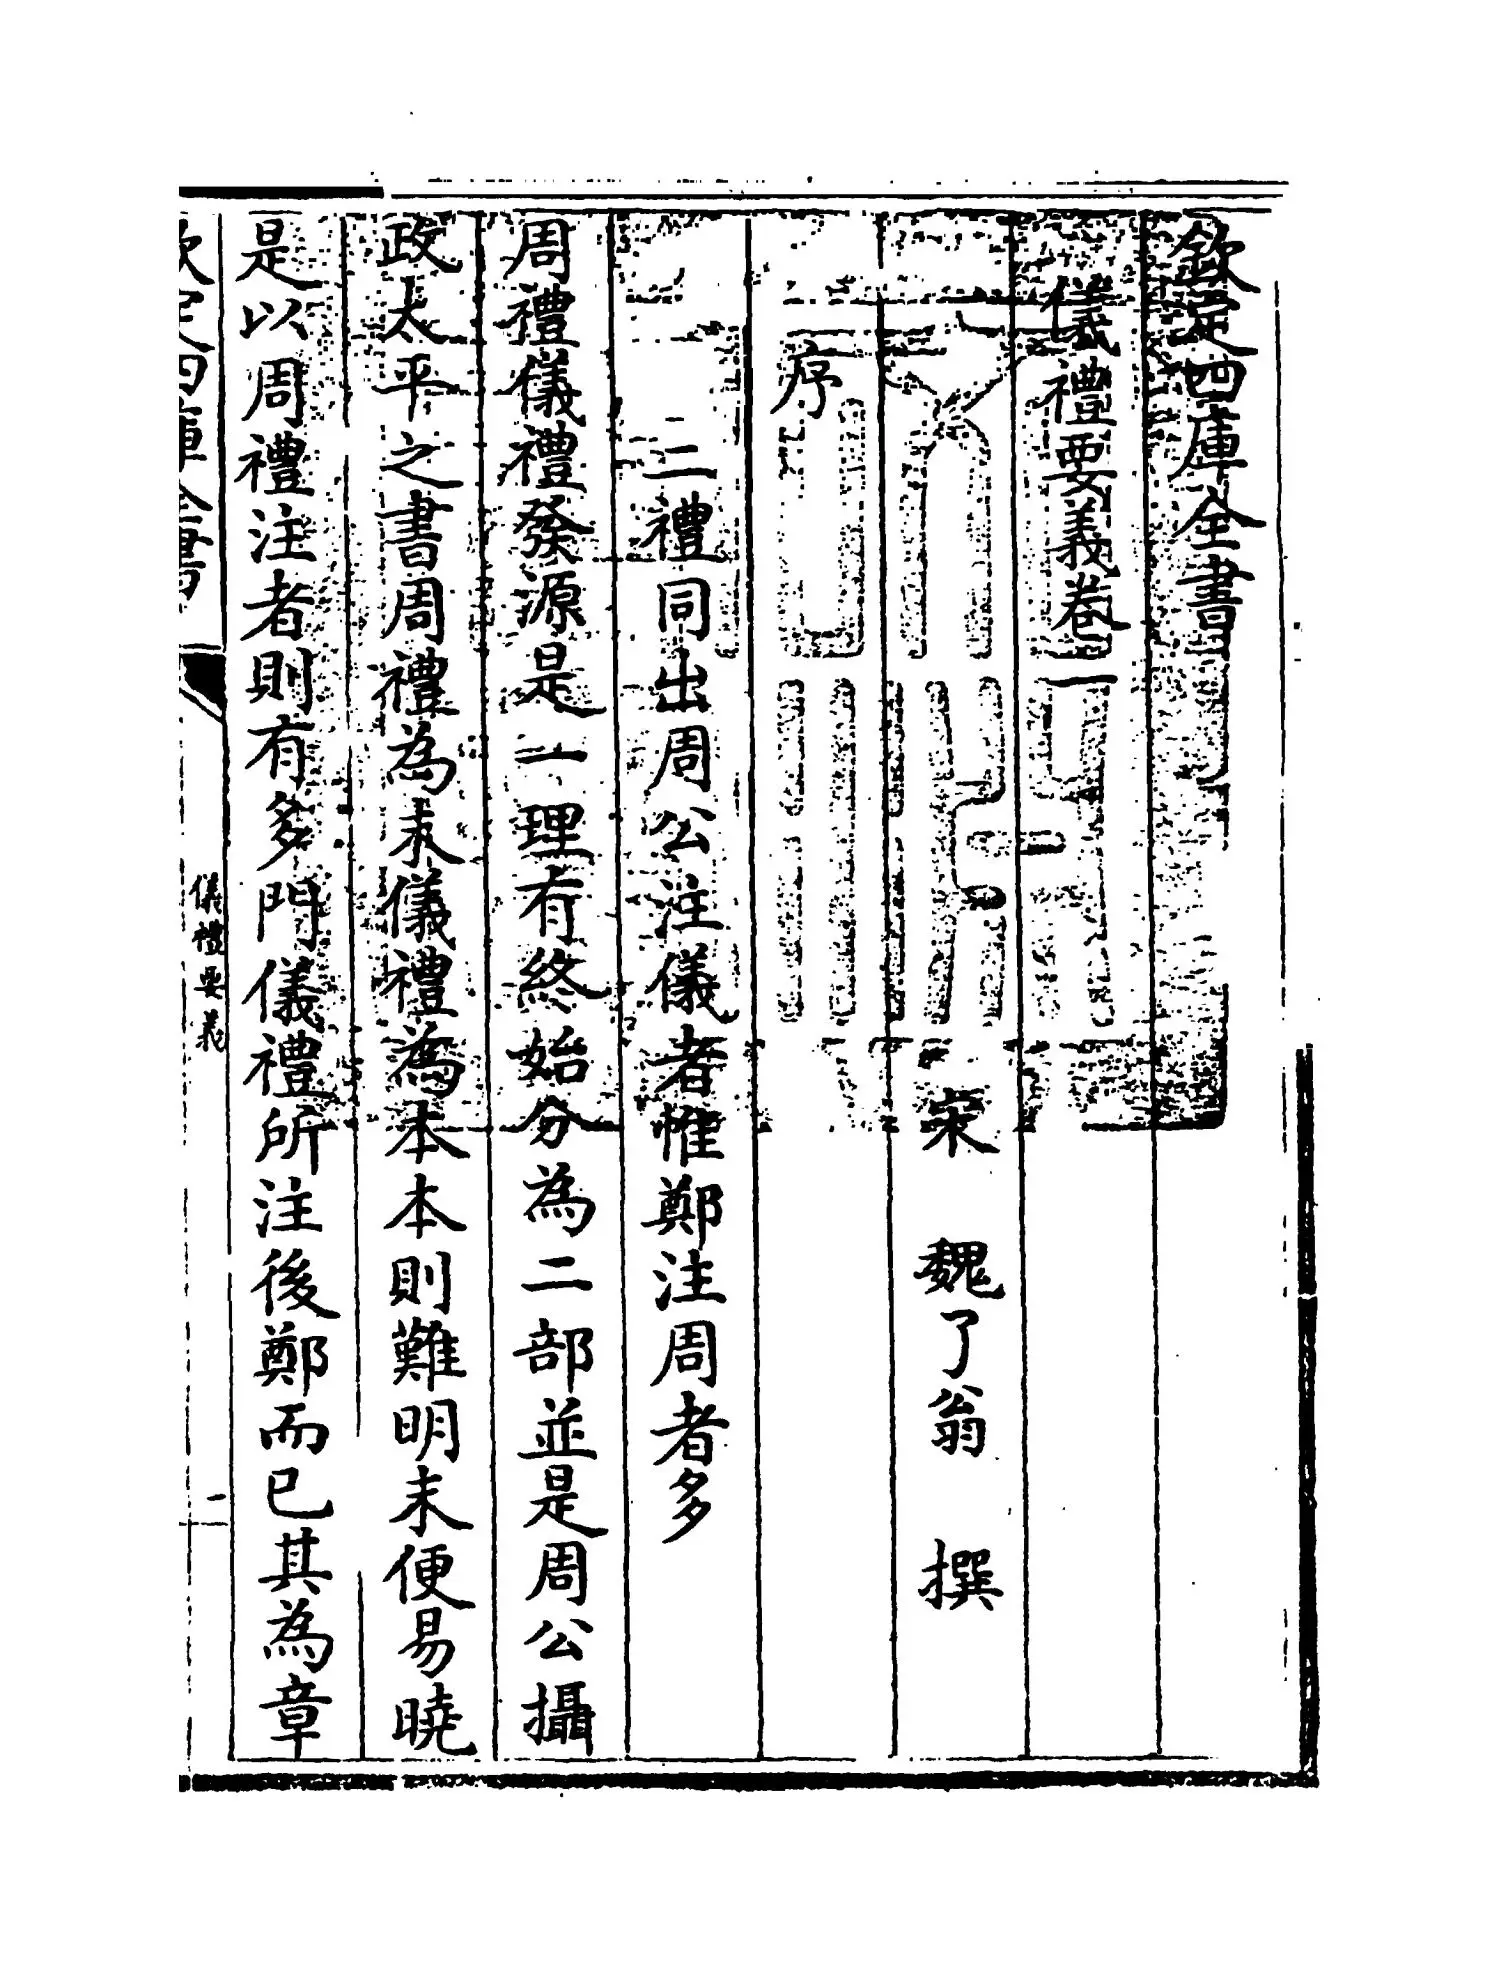 欽定四庫全書
儀禮要義卷一
宋 魏了翁 撰
序
二禮同出周公注儀者惟鄭注周者多
周禮儀禮發源是一理有終始分為二部並是周公攝
政太平之書周禮為末儀禮為本本則難明末便易曉
是以周禮注者則有多門儀禮所注後鄭而已其為章
欽定四庫全書
儀禮要義